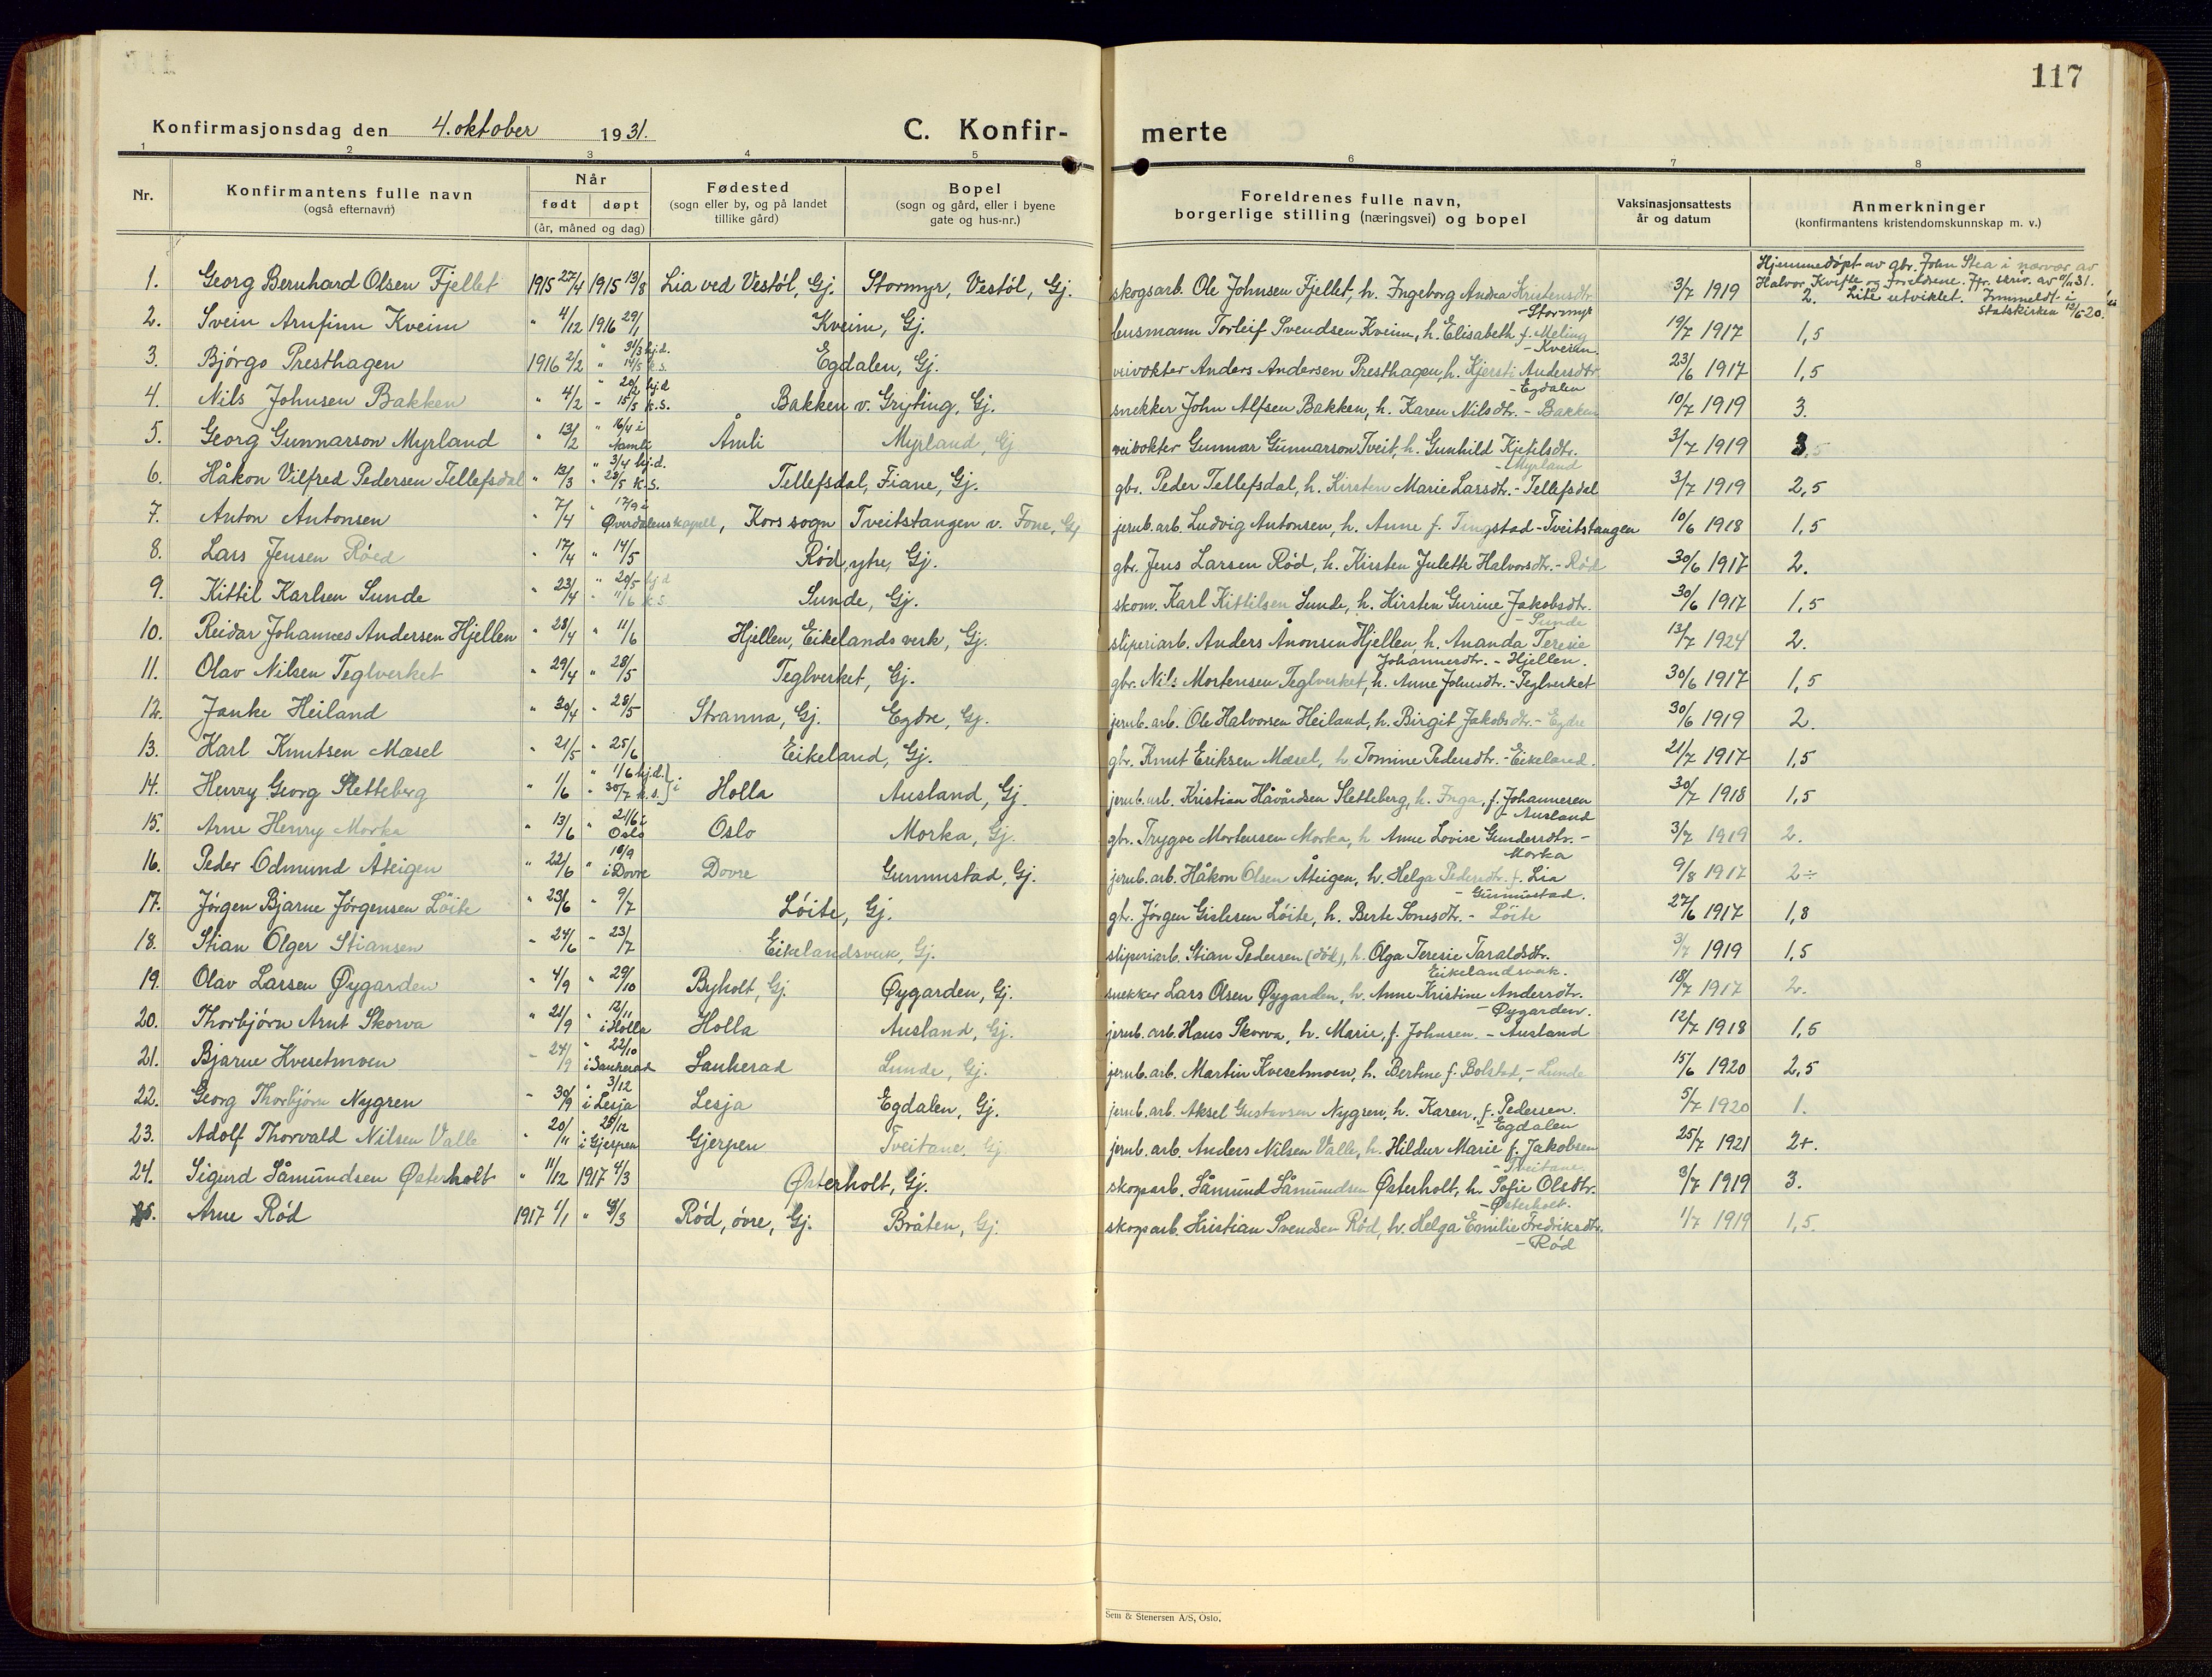 117
Konfirmasjonsdag den 4. oktober 1931.
C. Konfir- merte
1 2 3 4 5 6 7 8
Nr.
Konfirmantens fulle navn
(også efternavn)
Når
født døpt
(år, måned og dag)
Fødested
(sogn eller by, og på landet
tillike gård)
Bopel
(sogn og gård, eller i byene
gate og hus-nr.)
Foreldrenes fulle navn,
borgerlige stilling (næringsvei) og bopel
Vaksinasjonsattests
år og datum
Anmerkninger
(konfirmantens kristendomskunnskap m. v.)
Hjemmedøpt av gbr. John Stea i nærvær av
Halvor Kvifte og foreldrene. Jfr. skriv. av 11/11 31.
1. Georg Bernhard Olsen Fjellet 1915 27/4 1915 13/8 Lia ved Vestöl, Gj. Stormyr, Vestöl, Gj. skogsarb. Ole Johnsen Fjellet, h. Ingeborg Andrea Kristensdtr. 3/7 1919 2. Lite utviklet. Innmeldt i
- Stormyr statskirken 13/6 20.
2. Svein Arnfinn Kveim " 4/12 1916 29/1 Kveim, Gj. lensmann Torleif Svendsen Kveim, h. Elisabeth f. Meling 19/7 1917 1,5
" 31/3 hj.d. - Kveim.
3. Björgo Presthagen 1916 2/2 " 14/5 k.s. Egdalen, Gj. veivokter Anders Andersen Presthagen, h. Kjersti Andersdtr 23/6 1917 1,5
" 20/2 hj.d - Egdalen
4. Nils Johnsen Bakken " 4/2 " 15/5 k.s. Bakken v. Gryting, Gj. snekker John Alfsen Bakken, h. Karen Nilsdtr. - Bakken 10/7 1919 3.
" 16/4 i
5. Georg Gunnarson Myrland " 13/2 Åmli Åmli Myrland, Gj veivokter Gunnar Gunnarson Tveit, h. Gunhild Kjetilsdtr. 3/7 1919 3,5
" 3/4 hj.d. - Myrland
6. Håkon Vilfred Pedersen Tellefsdal " 13/3 " 28/5 k.s. Tellefsdal, Fiane, Gj. gbr. Peder Tellefsdal, h. Kirsten Marie Larsdtr. - Tellefsdal 3/7 1919 2,5
" 17/9 i
7. Anton Antonsen " 7/4 Øverdalens kapell, Kors sogn Tveitstangen v. Fone, Gj jernb.arb. Ludvig Antonsen, h. Anne f. Tingstad - Tveitstangen 10/6 1918 1,5
8. Lars Jensen Röed " 17/4 " 14/5 Röd, ytre, Gj. gbr. Jens Larsen Röd, h. Kirsten Julette Halvorsdtr. - Röd 30/6 1917 2.
" 20/5 hj.d
9. Kittil Karlsen Sunde " 23/4 " 11/6 k.s Sunde, Gj. skom. Karl Kittilsen Sunde, h. Kirsten Gurine Jakobsdtr. 30/6 1917 1,5
- Sunde
10. Reidar Johannes Andersen Hjellen " 28/4 " 11/6 Hjellen, Eikelands verk, Gj. sliperiarb. Anders Ånonsen Hjellen, h. Ananda Teresie 13/7 1924 2.
Johannesdtr. - Hjellen.
11. Olav Nilsen Teglverket " 29/4 " 28/5 Teglverket, Gj. gbr. Nils Mortensen Teglverket, h. Anne Johnsdtr. - Teglverket 30/6 1917 1,5
12. Janke Heiland " 30/4 " 28/5 Stranna, Gj. Egdre, Gj. jernb.arb. Ole Halvorsen Heiland, h. Birgit Jakobsdtr. - Egdre 30/6 1919 2.
13. Karl Knutsen Mæsel " 21/5 " 25/6 Eikeland, Gj. gbr. Knut Eriksen Mæsel, h. Tomine Pedersdtr. - Eikeland. 21/7 1917 1,5
" 1/6 hj.d.
14. Henry Georg Sletteberg " 1/6 " 30/7 k.s. } i Holla Ausland, Gj. jernb.arb. Kristian Håvårdsen Sletteberg, h. Inga, f. Johannesen 30/7 1918 1,5
" 21/6 i - Ausland
15. Arne Henry Morka " 13/6 Oslo Oslo Morka, Gj. gbr. Trygve Mortensen Morka, h. Anne Lovise Gundersdtr. - 3/7 1919 2.
10/9 Morka
16. Peder Odmund Åteigen " 22/6 " i Dovre Dovre Gunnustad, Gj. jernb.arb. Håkon Olsen Åteigen, h. Helga Pedersdtr. f. Lia 9/8 1917 2÷
- Gunnustad.
17. Jörgen Bjarne Jörgensen Löite " 23/6 " 9/7 Löite, Gj. gbr. Jörgen Gislesen Löite, h. Berte Tonesdtr. - Löite 27/6 1917 1,8
18. Stian Olger Stiansen " 24/6 " 23/7 Eikelandsverk, Gj. sliperiarb. Stian Pedersen (död), h. Olga Teresie Taraldsdtr. 3/7 1919 1,5
Eikelandsverk.
19. Olav Larsen Øygarden " 4/9 " 29/10 Byholt, Gj. Øygarden, Gj. snekker Lars Olsen Øygarden, h. Anne Kristine Andersdtr. 18/7 1917 2.
" 12/11 - Øygarden.
20. Thorbjörn Arnt Skorva " 21/9 i Holla Holla Ausland, Gj. jernb.arb. Hans Skorva, h. Marie, f. Johnsen. - Ausland 12/7 1918 1,5
" 22/10
21. Bjarne Kvesetmoen " 24/9 i Sauherad Sauherad Lunde, Gj. jernb.arb. Martin Kvesetmoen, h. Bertine f. Bolstad, - Lunde 15/6 1920 2,5
" 3/12
22. Georg Thorbjörn Nygren " 30/9 i Lesja Lesja Egdalen, Gj. jernb.arb. Aksel Gustavsen Nygren, h. Karen, f. Pedersen. 5/7 1920 1.
25/12 - Egdalen
23. Adolf Thorvald Nilsen Valle " 20/11 i Gjerpen Gjerpen Tveitane, Gj. jernb.arb. Anders Nilsen Valle, h. Hildur Marie f. Jakobsen 25/7 1921 2+.
- Tveitane.
24. Sigurd Såmundsen Østerholt " 11/12 1917 4/3 Østerholt, Gj. skogsarb. Såmund Såmundsen Østerholt, h. Sofie Olsdtr. 3/7 1919 3.
- Østerholt.
25. Arne Röd 1917 1/1 " 4/3 Röd, övre, Gj. Bråten, Gj. skogsarb. Kristian Svendsen Röd, h. Helga Emilie Fredriksdtr. 1/7 1919 1,5.
- Röd
Sem & Stenersen A/S, Oslo.